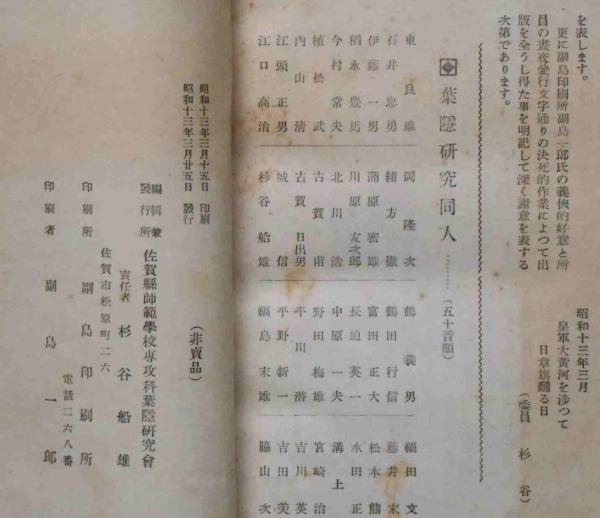 を表します。
更に副島印刷所副島一郎氏の義俠的好意と所
員の晝夜兼行文字通りの決死的作業によつて出
版を全うし得た事を明記して深く謝意を表する
次第であります。
昭和十三年三月
皇軍大黄河を渉つて
日章旗飜る日
(委員 杉谷)
葉隠研究同人………(五十音順)
東良雄
石井忠勇
伊藤一男
稻永豊馬
今村常夫
植松武
内山清
江頭正男
江口高治
岡隆次
緒方徹
蒲原密雄
川原友次郎
北川浩
古賀甫
古賀日出男
城信
杉谷船雄
鶴義男
鶴田行信
富田正大
長迫英一
中原一夫
野田梅雄
平川潜
平野新一
福島末雄
福田文
藤井末
松本熊
水田正
溝上
宮崎治
吉川英
吉田美
脇山次
昭和十三年三月十五日 印刷
昭和十三年三月廿五日 發行
(非賣品)
編輯兼
發行所 佐賀縣師範學校専攻科葉隠研究會
責任者 杉谷船雄
佐賀市松原町二六
印刷所 副島印刷所
電話二六八番
印刷者 副島一郎